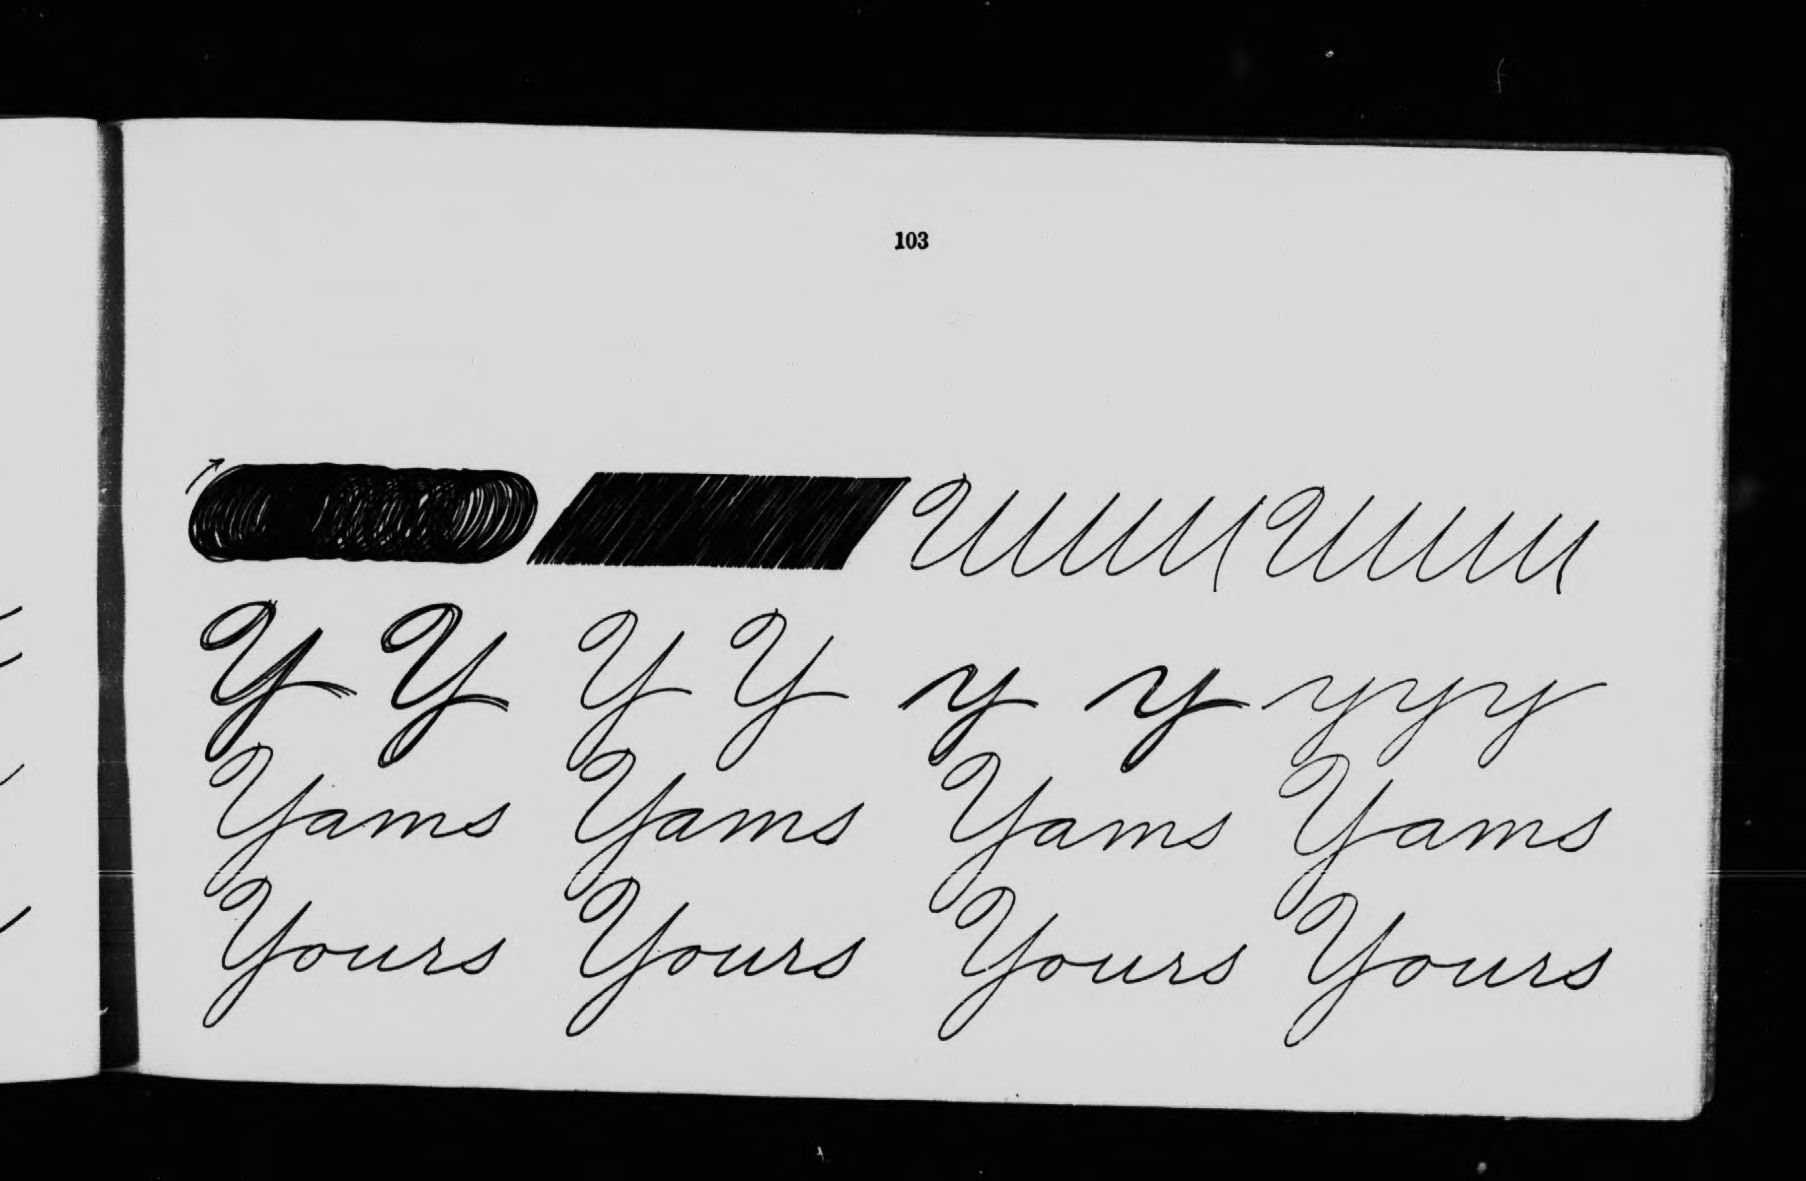 103
Y Y Y Y y y y y y
Yams Yams Yams Yams
Yours Yours Yours Yours